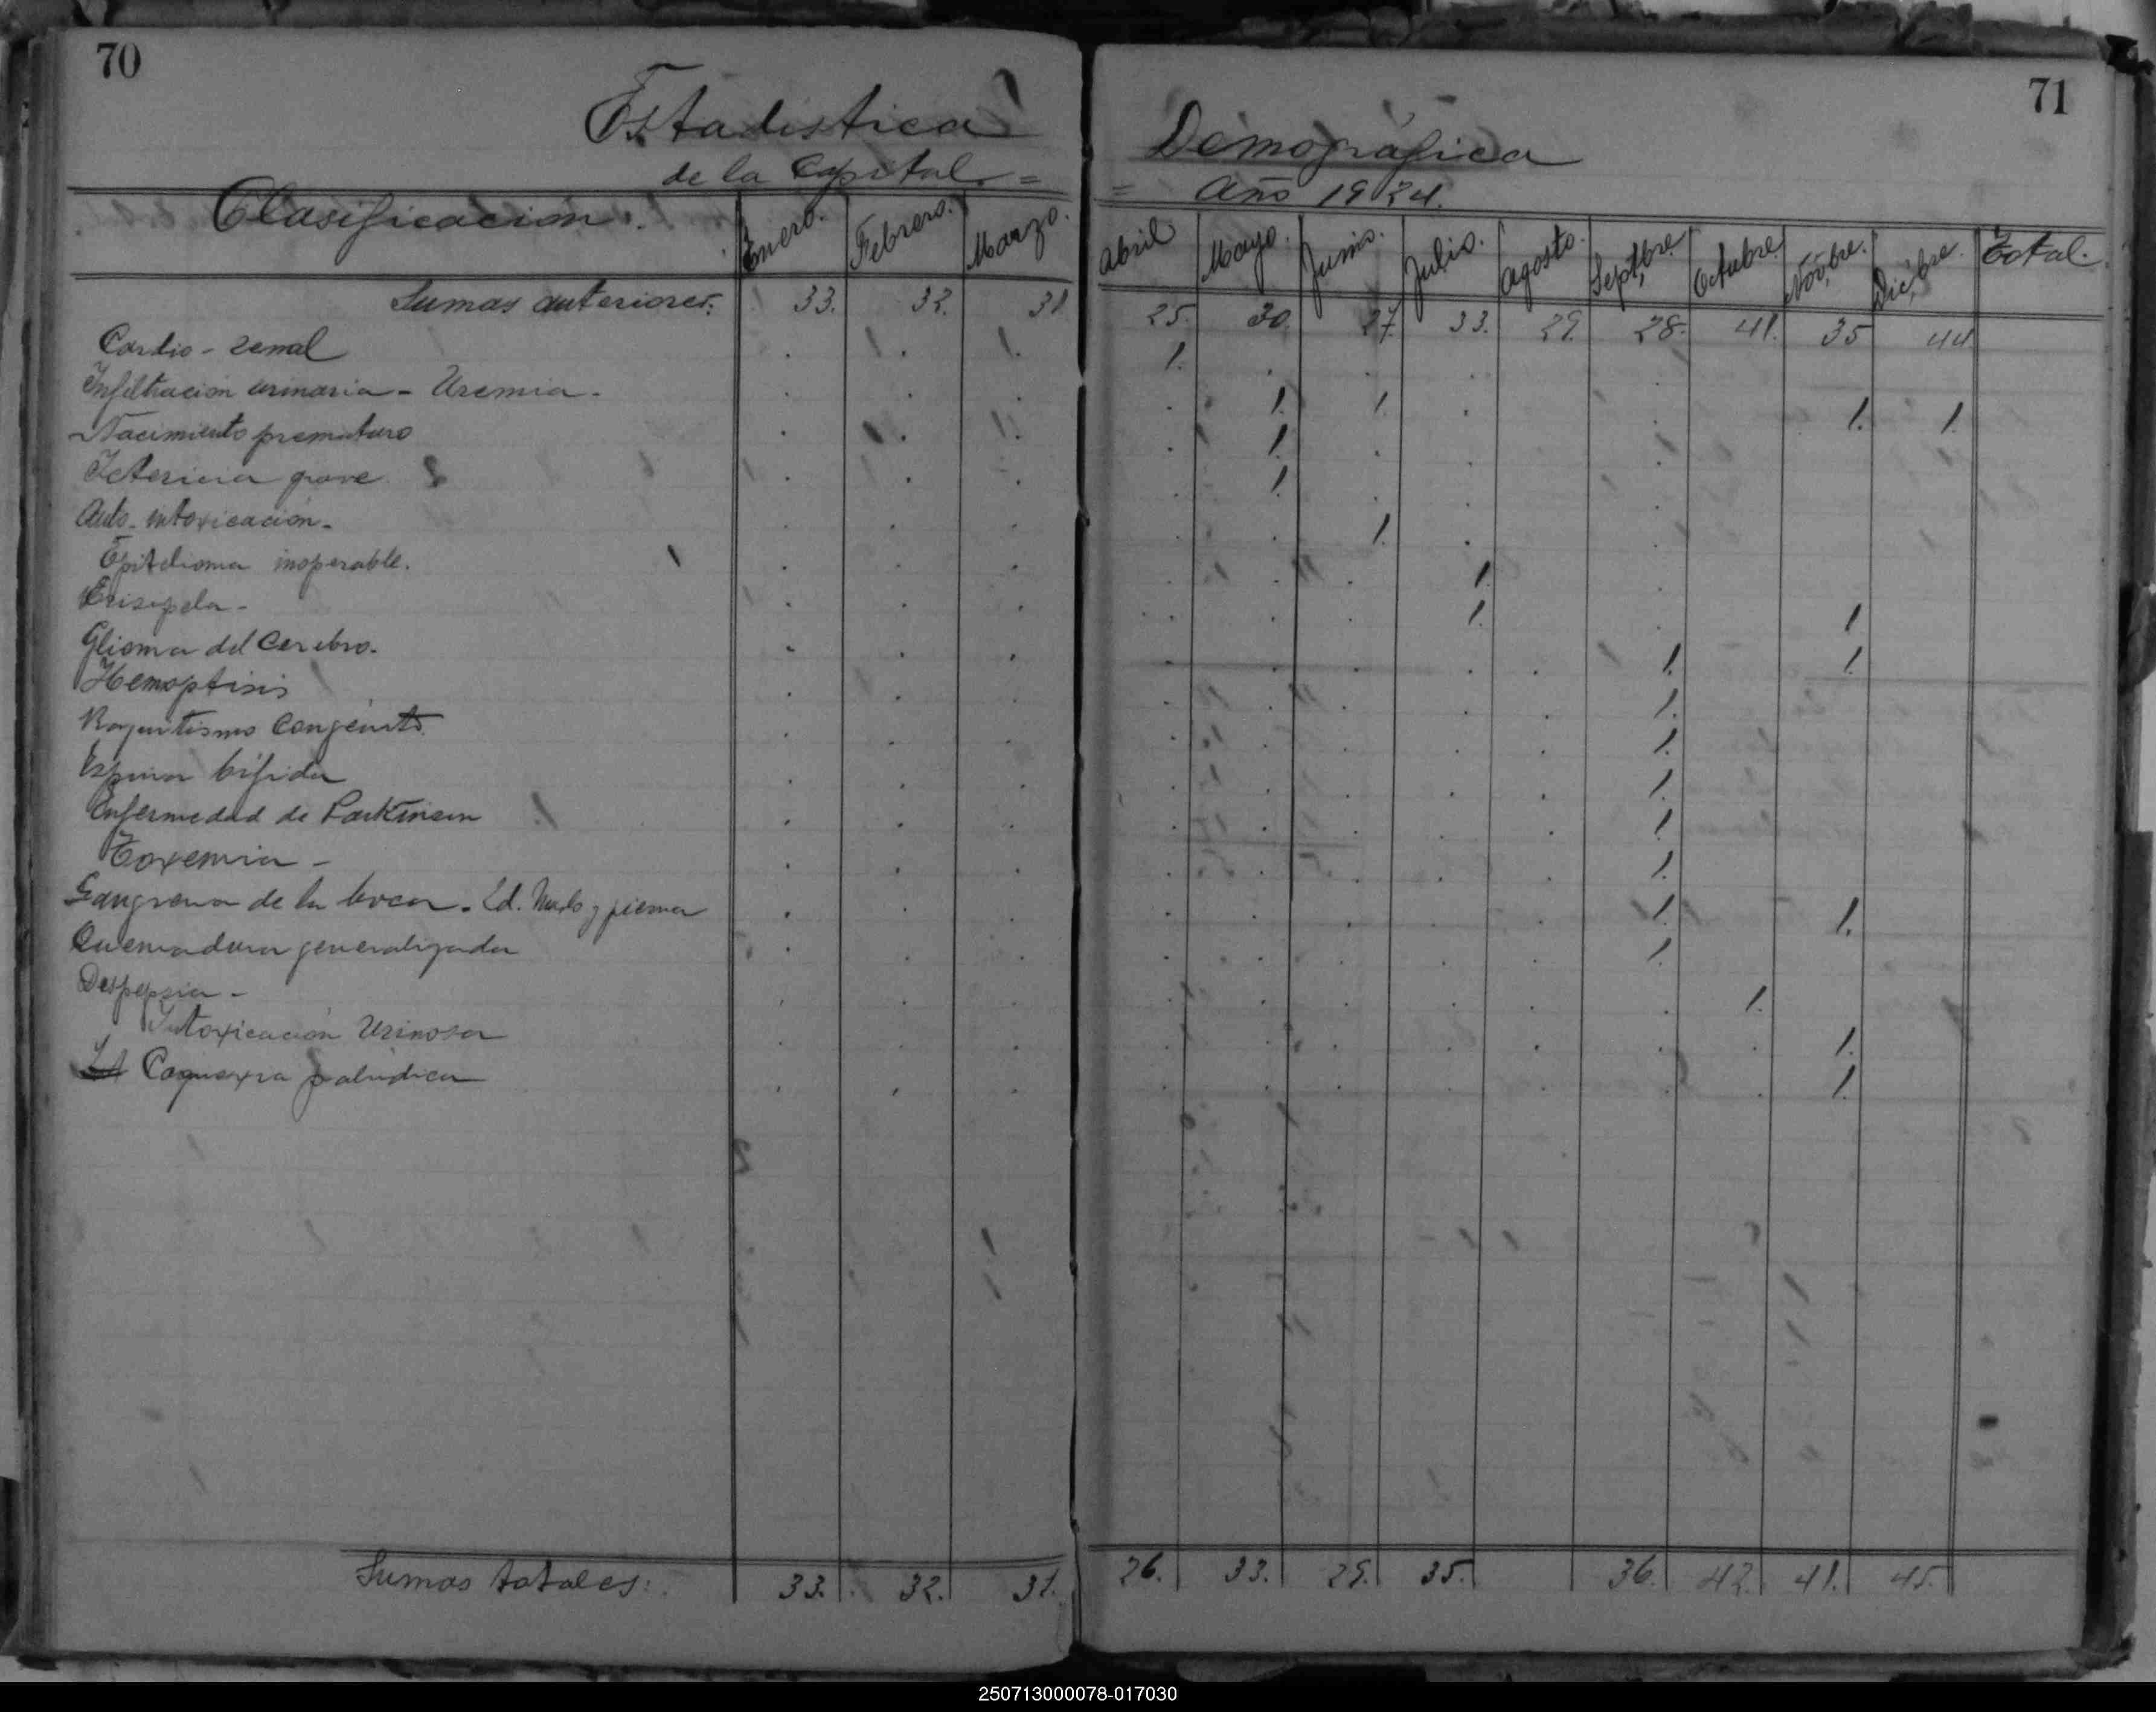 70
71
Estadistica Demográfica
de la Capital. = = Año 1934.
Clasificacion. Enero. Febrero. Marzo. Abril Mayo. Junio. Julio. Agosto. Septbre. Octubre. Novbre. Dicbre. Total.
Sumas anteriores. 33. 32. 31 25. 30. 27. 33. 29. 28. 41. 35 44
Cardio-renal 1.
Infiltracion urinaria - Uremia. 1. 1. 1. 1.
Nacimiento prematuro 1.
Ictericia grave 1.
Auto-intoxicacion. 1.
Epitelioma inoperable. 1.
Erisipela - 1. 1
Glioma del cerebro. 1. 1.
Hemoptisis 1.
Raquitismo Congénito 1.
Espina bífida 1.
Enfermedad de Parkinson 1.
Toxemia - 1.
Gangrena de la boca. Id. y pierna 1. 1.
Quemadura generalizada 1.
Despepsia - 1.
Intoxicación Urinosa 1.
Caquexia palúdica 1.
Sumas totales: 33. 32. 31. 26. 33. 29. 35. 36. 42. 41. 45.
250713000078-017030